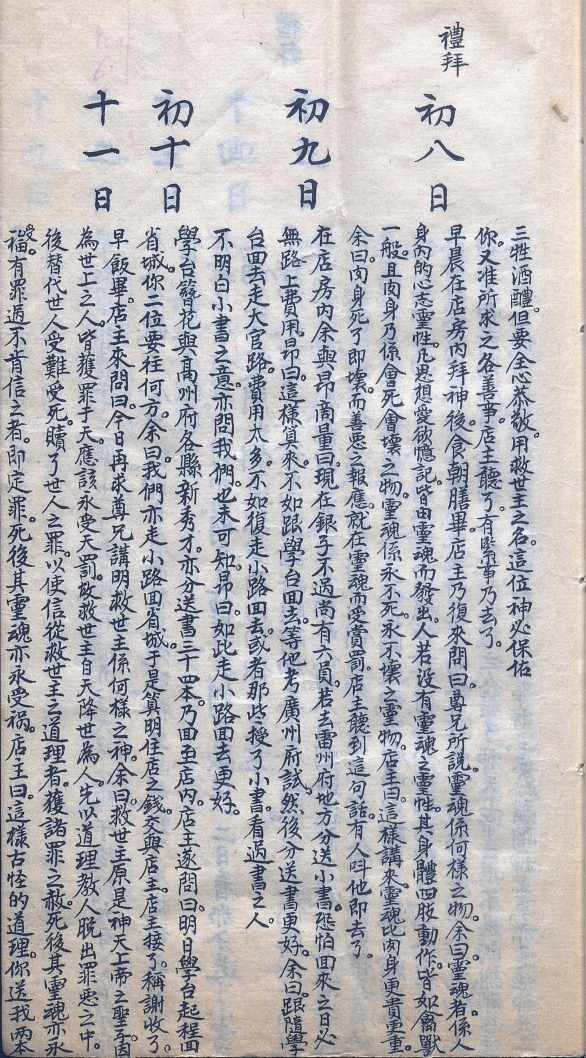 三牲酒醴。但要全心恭敬。用救世主之名。這位神必保佑
你。又准所求之各善事。店主聽了。有監事乃去了。
禮拜
初八日
早晨在店房內拜神後。食朝膳畢。店主乃復來問曰。尊兄所說靈魂係何樣之物。余曰。靈魂者。係人
身內的心志靈性。凡思想愛欲憶記。皆由靈魂而發出。人若沒有靈魂之靈性。其身體四肢動作。皆如禽獸
一般。且肉身乃係會死會壞之物。靈魂係永不死。永不壞之靈物。店主曰。這樣講來。靈魂比肉身更貴重。
余曰。肉身死了即壞。而善惡之報應。就在靈魂而受賞罰。店主聽到這句話。有人呌他即去了。
初九日
在店房內。余與昂商量曰。現在銀子不過尚有六員。若去雷州府地方分送小書。恐怕回來之日。必
無路上費用。昂曰。這樣算來。不如跟學台回去。等他考廣州府試。然後分送書更好。余曰。跟隨學
台回去走大官路。費用太多。不如復走小路回去。或者那些授了小書。看過書之人。
不明白小書之意。亦問我們。也未可知。昂曰。如此走小路回去更好。
初十日
學台簪花與高州府各縣新秀才。亦分送書三十四本。乃回至店內。店主遂問曰。明日學台起程回
省城。你二位要往何方。余曰。我們亦走小路回省城。于是算明住店之錢。交與店主。店主接了。稱謝收了。
十一日
早飯畢。店主來問曰。今日再求尊兄講明救世主係何樣之神。余曰。救世主原是神天上帝之聖子。因
為世上之人。皆獲罪于天。應該永受天罰。故救世主自天降世為人。先以道理教人脫出罪惡之中。
後替代世人受難受死。贖了世人之罪。以使信從救世主之道理者。獲諸罪之赦。死後其靈魂亦永
受福。有罪過不肯信之者。即定罪。死後其靈魂亦永受禍。店主曰。這樣古怪的道理。你送我兩本